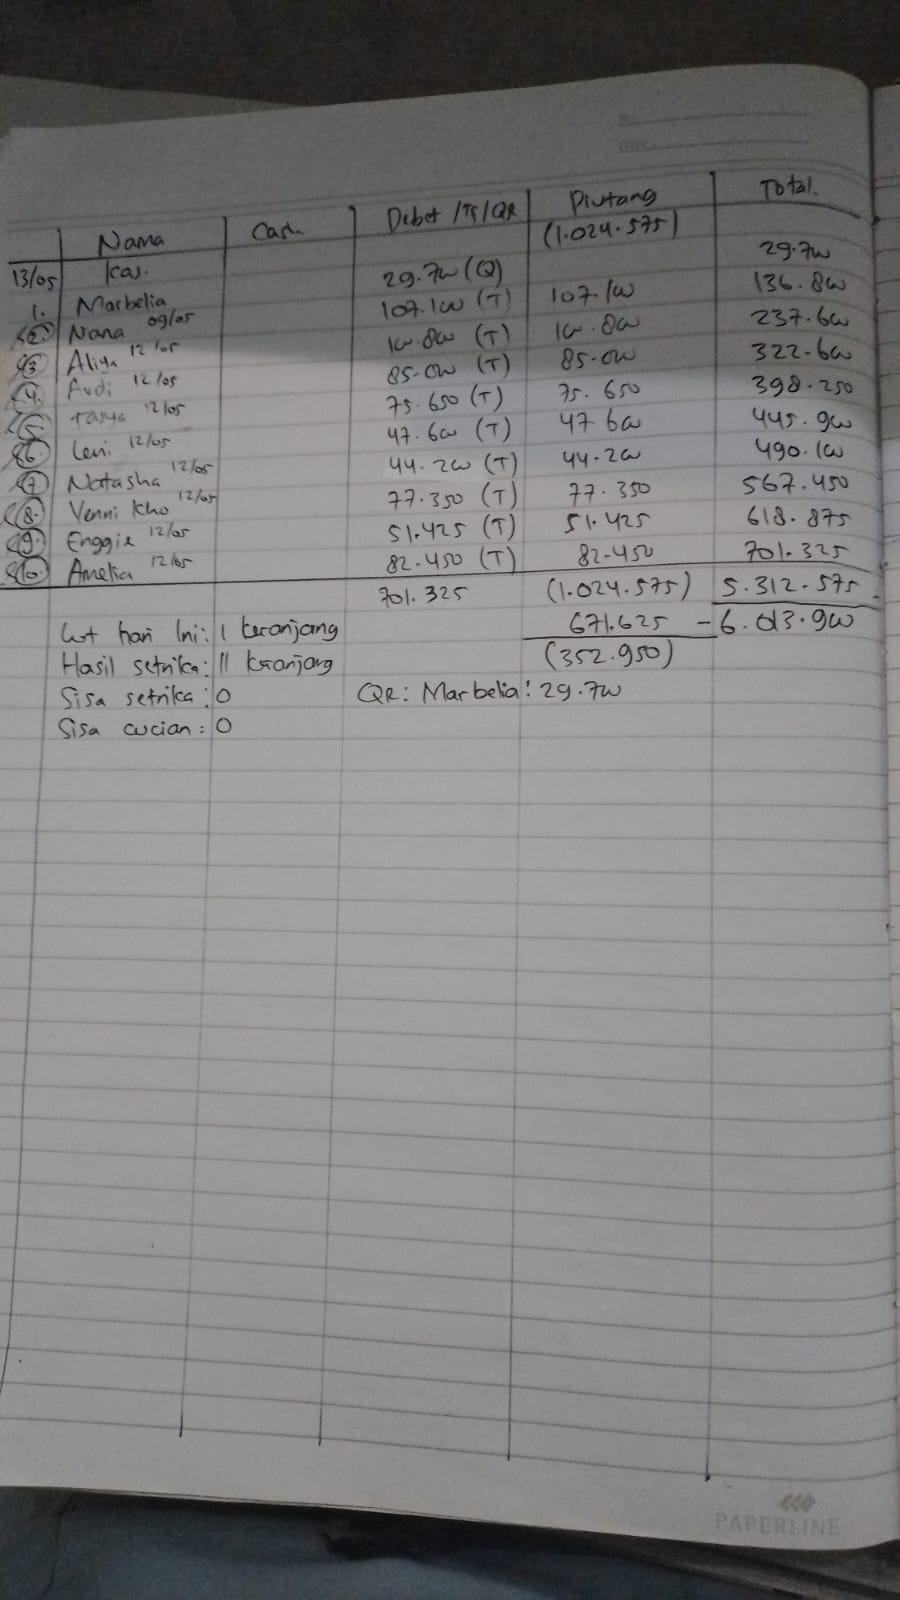 Nama Cash Debet /Tf/QR Piutang Total.
(1.024.575)
13/05 Kas.
1. Marbelia 29.700 (Q) 29.700
2. Nana 09/05 107.100 (T) 107.100 136.800
3 Aliya 12/05 100.800 (T) 100.800 237.600
4. Audi 12/05 85.000 (T) 85.000 322.600
5 Tasya 12/05 75.650 (T) 75.650 398.250
6. Leni 12/05 47.600 (T) 47.600 445.900
7 Natasha 12/05 44.200 (T) 44.200 490.100
8. Venni Kho 12/05 77.350 (T) 77.350 567.450
9. Enggie 12/05 51.425 (T) 51.425 618.875
10. Amelia 12/05 82.450 (T) 82.450 701.325
701.325 (1.024.575) 5.312.575
671.625 - 6.013.900
(352.950)
hari Ini: 1 keranjang
Hasil setrika: 11 keranjang
Sisa setrika: 0 QR: Marbelia: 29.700
Sisa cucian: 0
PAPERLINE